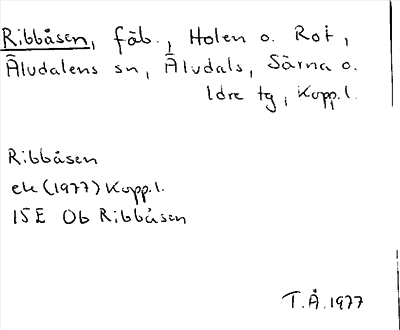 Ribbåsen, fäb., Holen o. Rot,
Älvdalens sn, Älvdals, Särna o.
Idre tg, Kopp.l.
Ribbåsen
ek (1977) Kopp.l.
15E 0b Ribbåsen
T.Å.1977